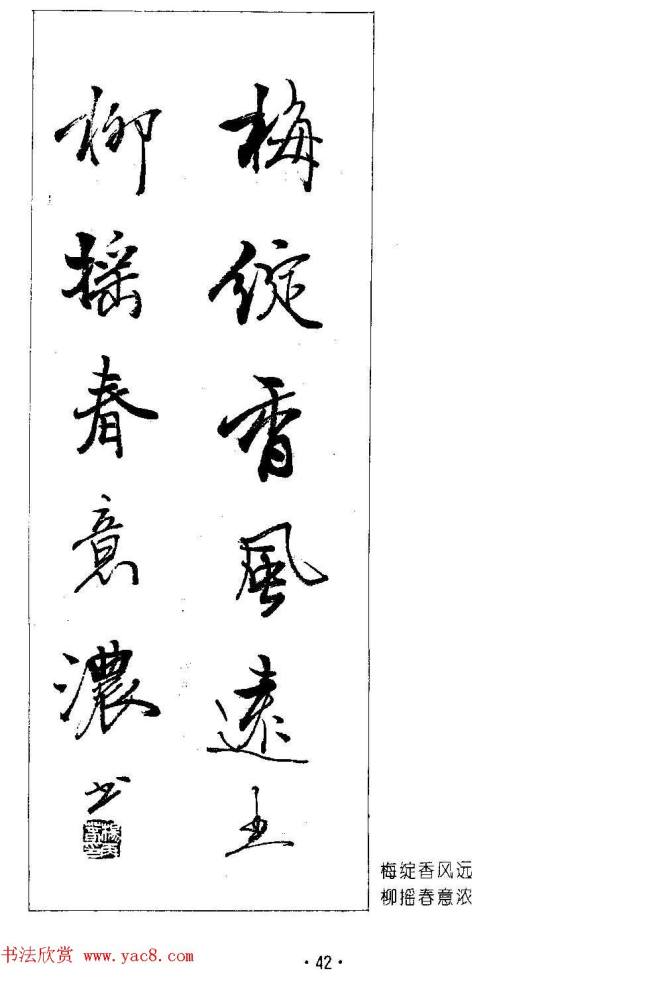 梅綻香風遠
柳搖春意濃 书
梅绽香风远
柳摇春意浓
书法欣赏 www.yac8.com
·42·